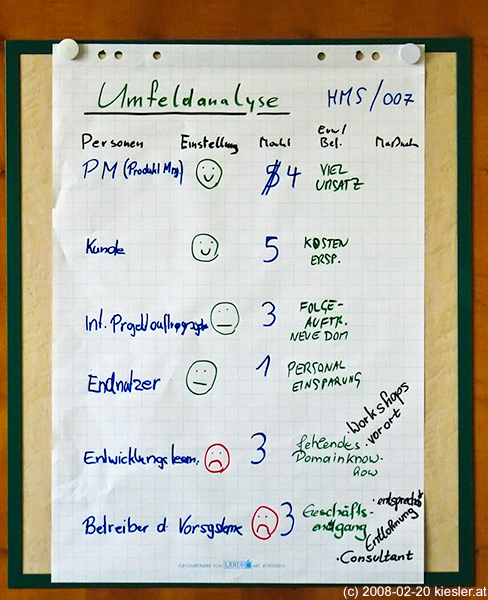 Umfeldanalyse HMS/007
Personen Einstellung Macht Erw/ Bef. Maßnahm
PM (Produkt Mng.) 4 VIEL
UMSATZ
Kunde 5 KOSTEN
ERSP.
Int. Projektauftraggeber 3 FOLGE-
AUFTR.
NEUE DOM
Endnutzer 1 PERSONAL
EINSPARUNG
Entwicklungsteam. 3 fehlendes
Domainknow-
how
• Workshops
• vorort
Betreiber d. Vorsysteme 3 Geschäfts-
entgang
• entsprechd
Entlohnung
• Consultant
LANDRÉ
(c) 2008-02-20 kiesler.at